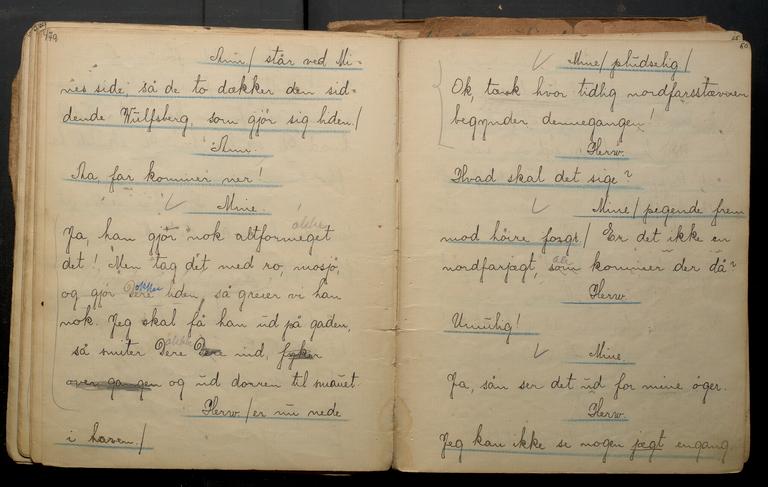 49a
Ann / står ved Mi-
nes side, så de to dækker den sid-
dende Wulfsberg, som gjör sig liden /
Ann.
Aa, far kommer ner!
Mine.
Ja, han gjör nok altformeget
det! Men tag dét med ro, mosjö,
og gjör Dere liden, så greier vi han
nok. Jeg skal få han ud på gaden,
så smiter Dere Dere ind, fyker
over gangen og ud dorren til smauet
Herw. / er nu nede
i haven. /
50
Mine / pludselig /
Ok, tænk hvor tidlig nordfarsstævnen
begynder dennegangen!
Herw.
Hvad skal det sige?
Mine / pegende frem
mod höire forgr. / Er det ikke en
nordfarjægt, som kommer der då?
Herw.
Umulig!
Mine
Ja, sån ser det ud for mine öger.
Herw.
Jeg kan ikke se nogen jægt engang.